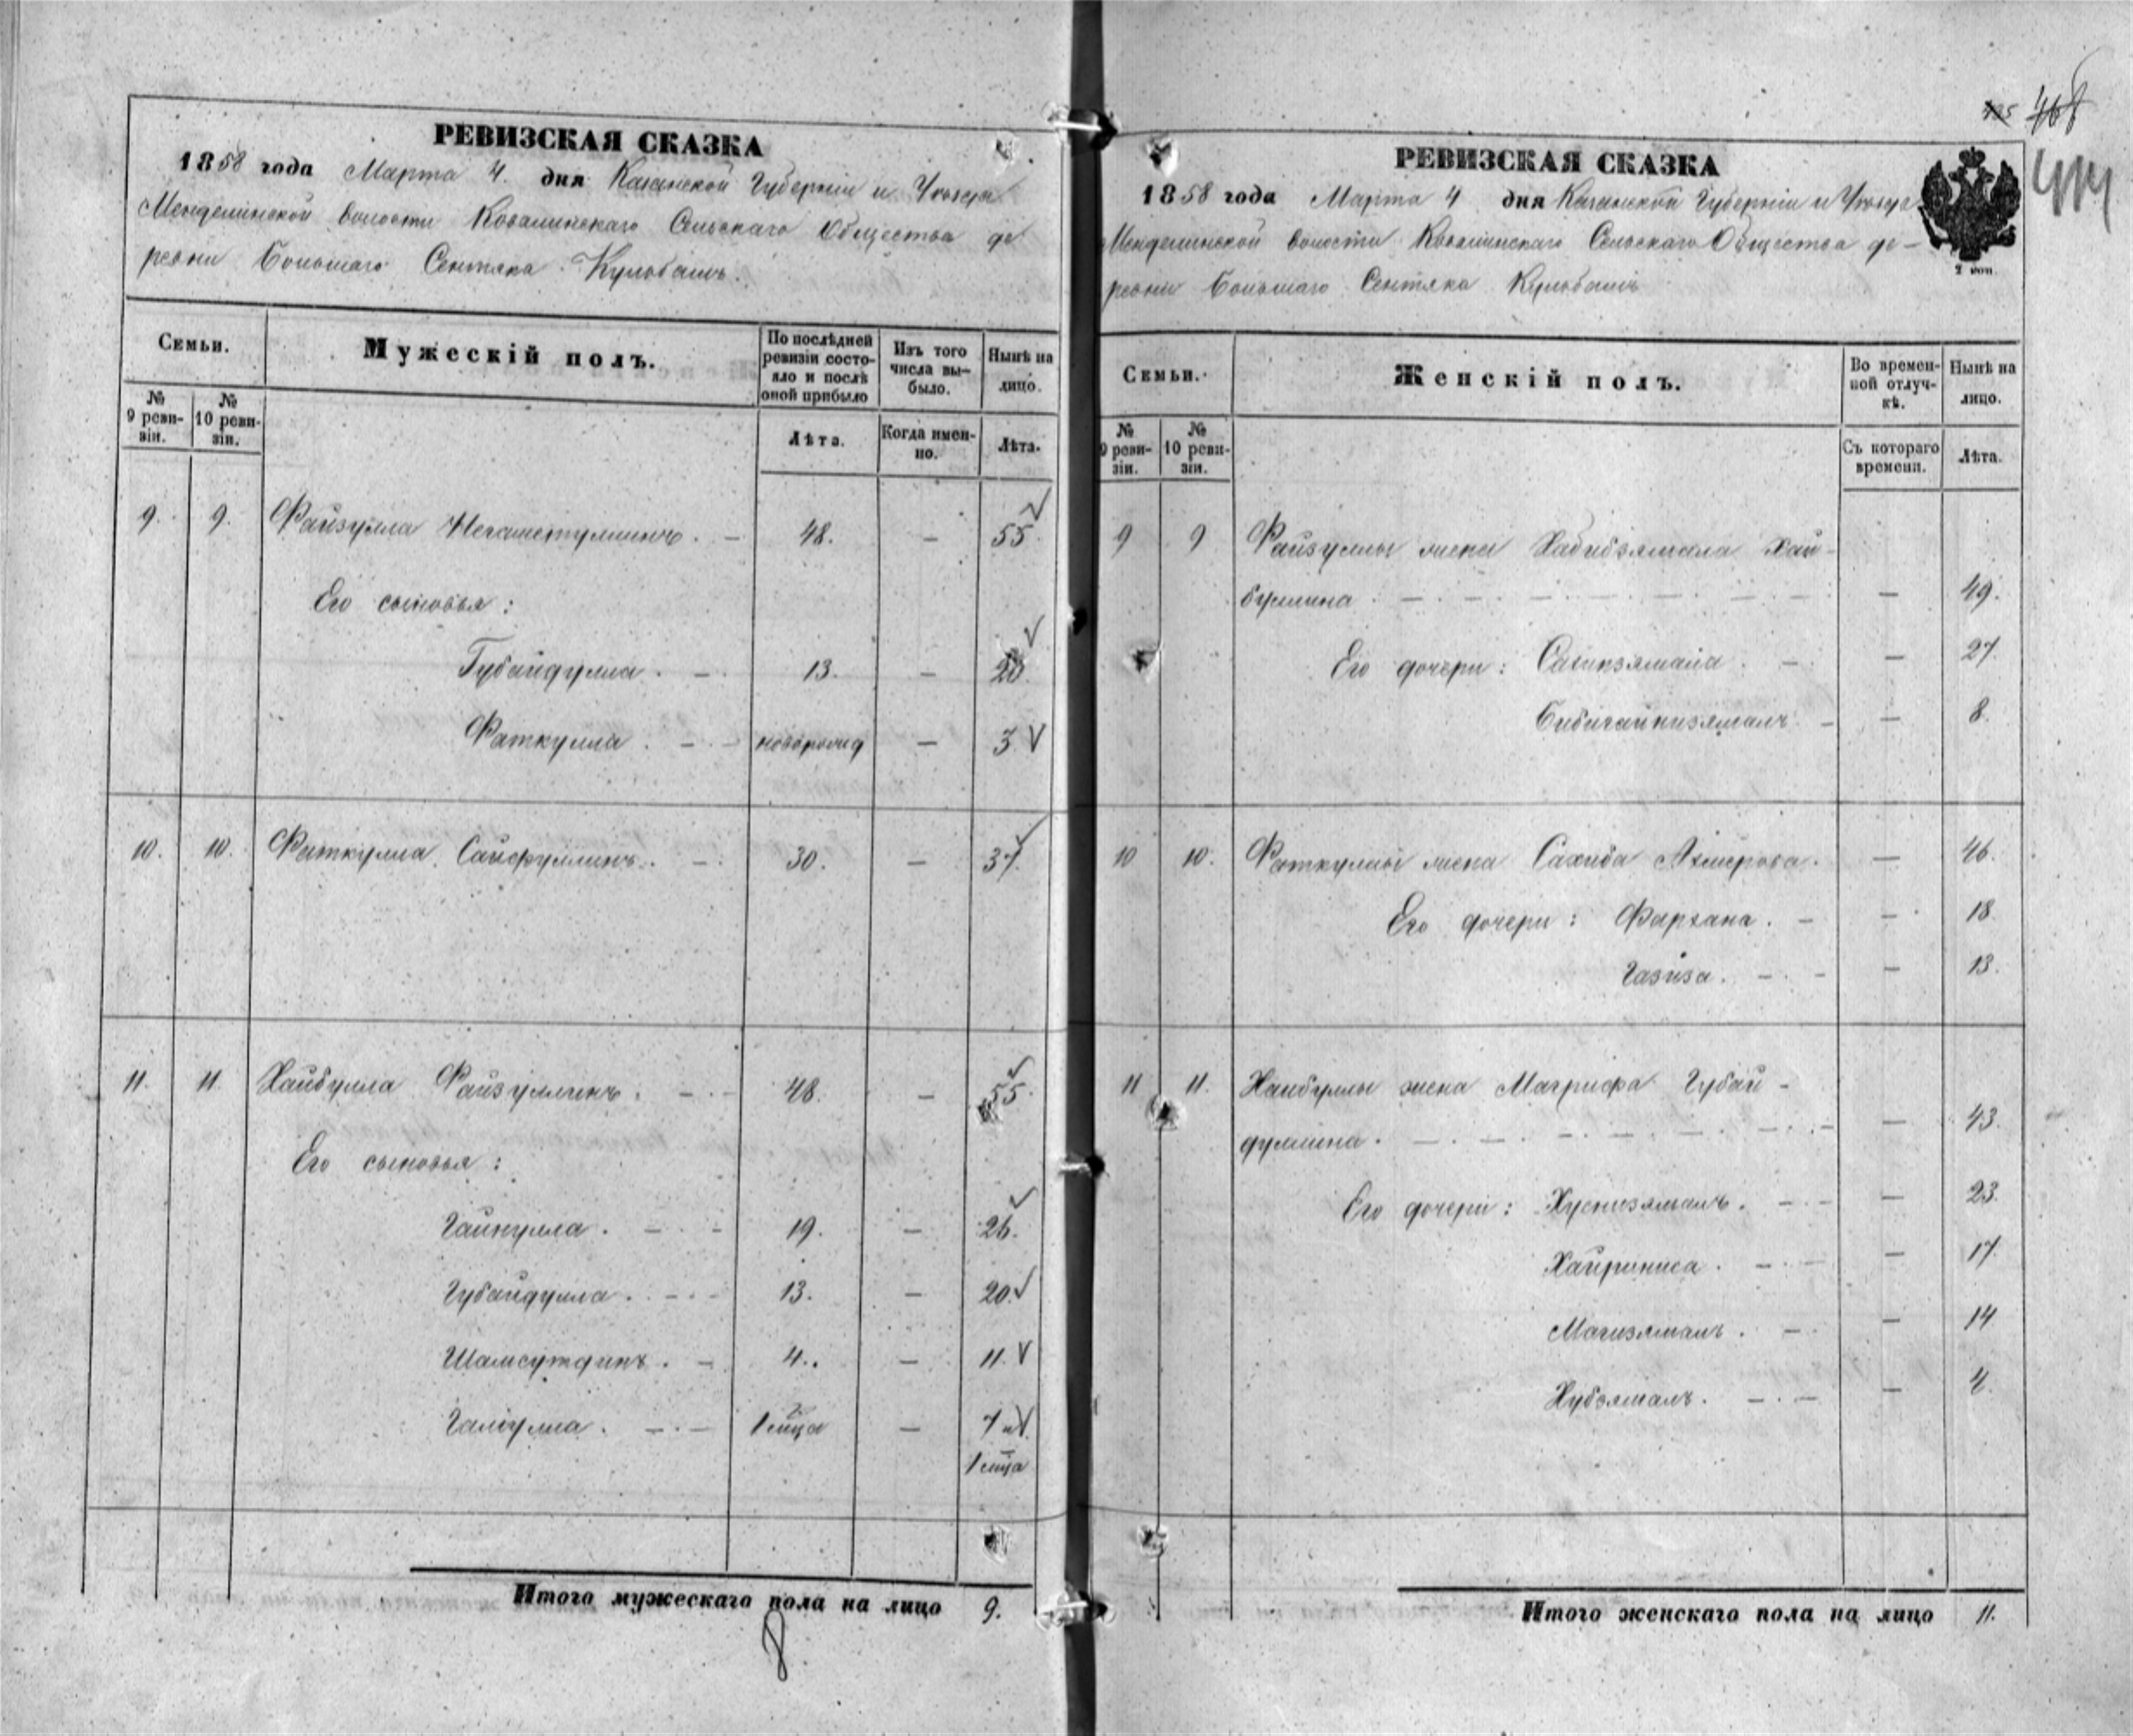 РЕВИЗСКАЯ СКАЗКА
1858 года Марта 4. дня Казанской Губерніи и Уѣзда
Менделинской волости Ковалинскаго Сельскаго Общества де
ревни Большаго Сентяка Кульбашъ.
Семьи.
№ 9 ревизіи.
№ 10 ревизіи.
Мужескій полъ.
По послѣдней ревизіи состояло и послѣ оной прибыло
Лѣта.
Изъ того числа выбыло.
Когда именно.
Нынѣ на лицо.
Лѣта.
9. 9. Файзулла Негаметуллинъ. — 48. — 55
Его сыновья:
Губайдулла. — 13. — 20.
Фаткулла. — новорожд — 3
10. 10. Фаткулла Сайфуллинъ. — 30. — 37.
11. 11. Хайбулла Файзуллинъ. — 48. — 55.
Его сыновья:
Гайнулла. — 19. — 26.
Губайдулла. — 13. — 20.
Шамсутдинъ. — 4. — 11.
Галiулла. — 1 м-ца — 7 и
1 м-ца
Итого мужескаго пола на лицо 9.
468
РЕВИЗСКАЯ СКАЗКА
1858 года Марта 4 дня Казанской Губерніи и Уѣзда
Менделинской волости Ковалинскаго Сельскаго Общества де—
ревни Большаго Сентяка Кульбашъ
2 коп.
Семьи.
№ 9 ревизіи.
№ 10 ревизіи.
Женскій полъ.
Во временной отлучкѣ.
Съ котораго времени.
Нынѣ на лицо.
Лѣта.
9 9 Файзуллы жена Хабибзямала Хай-
буллина. — 49.
Его дочери: Сагипзямала. — 27.
Бибигайнизямалъ — 8.
10 10. Фаткуллы жена Сахиба Амирова. — 46.
Его дочери: Фархана. — 18.
Газиза. — 13.
11 11. Хайбуллы жена Магрифа Губай-
дуллина. — 43.
Его дочери: Хуснизямалъ. — 23.
Хайрониса. — 17
Магизямалъ. — 14
Хубзямалъ. — 4.
Итого женскаго пола на лицо 11.